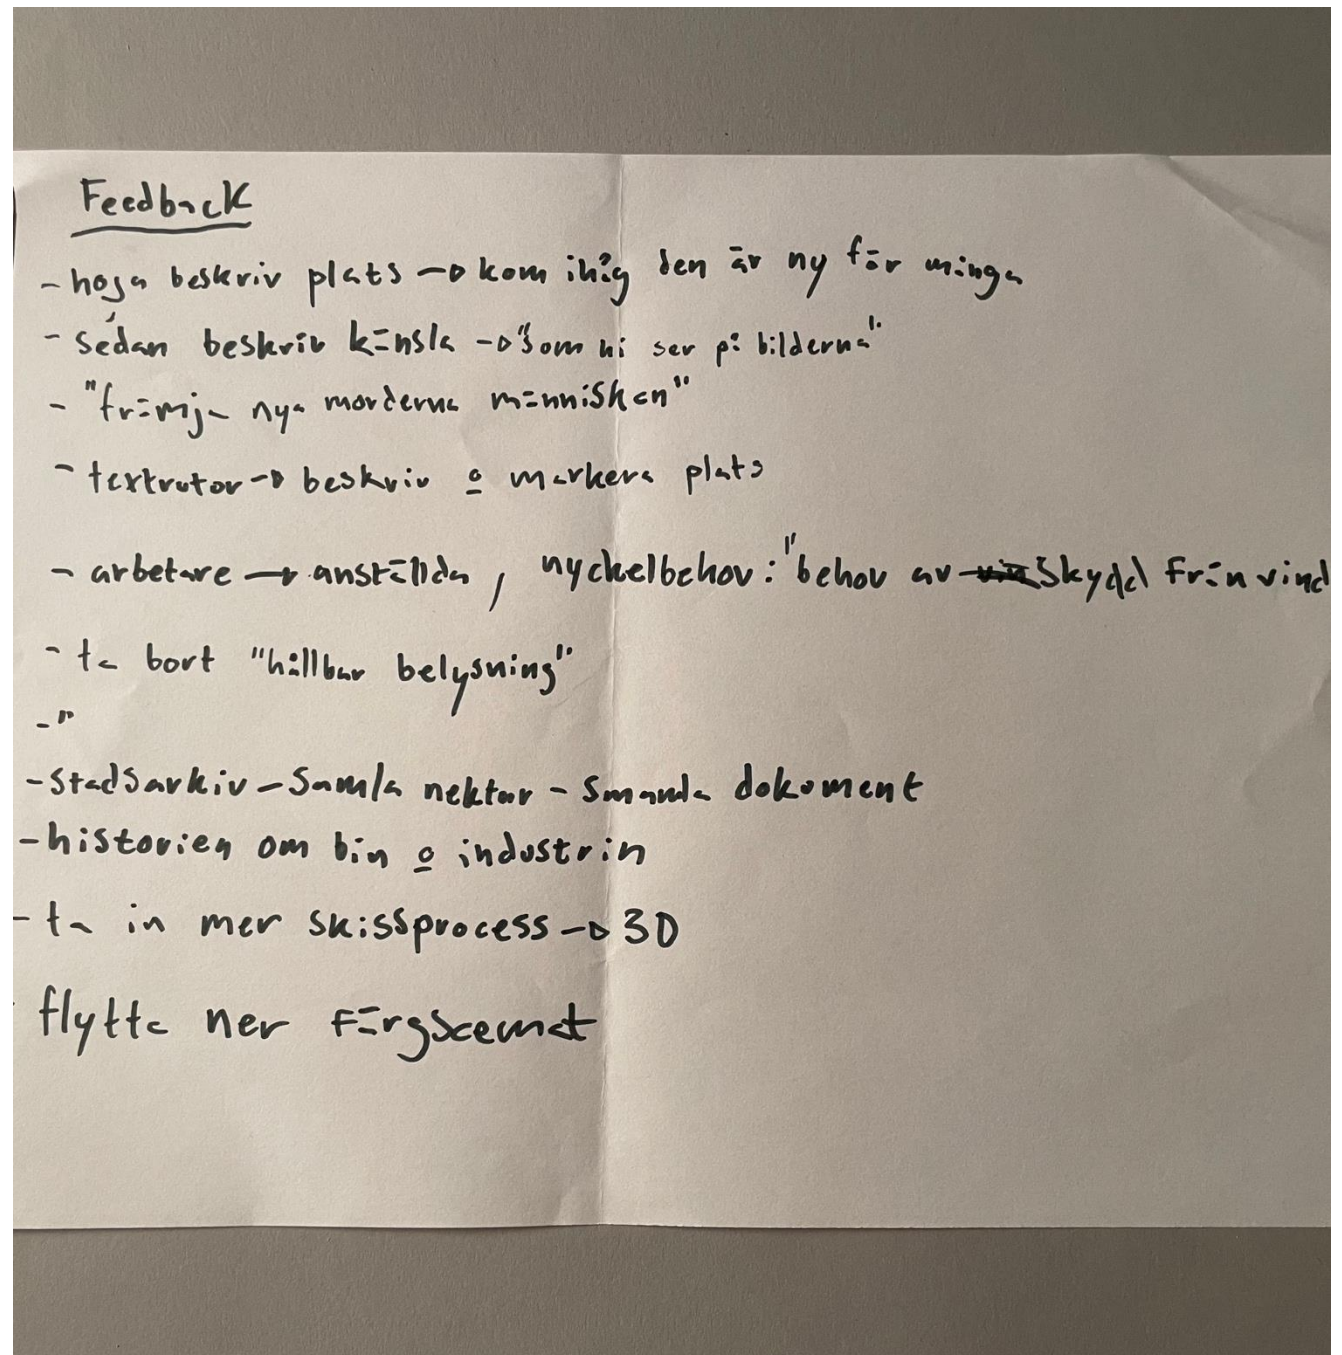 Feedback
- hoja beskriv plats → kom ihåg den är ny för många
- sedan beskriv känsla → "som ni ser på bilderna"
- "främja nya morderna människan"
- textrutor → beskriv o markera plats
- arbetare → anställda, nyckelbehov: "behov av skydd från vind
- ta bort "hållbar belysning"
- "
- stadsarkiv - samla nektar - smamla dokoment
- historien om bin o industrin
- ta in mer skissprocess → 3D
flytta ner färgscemat